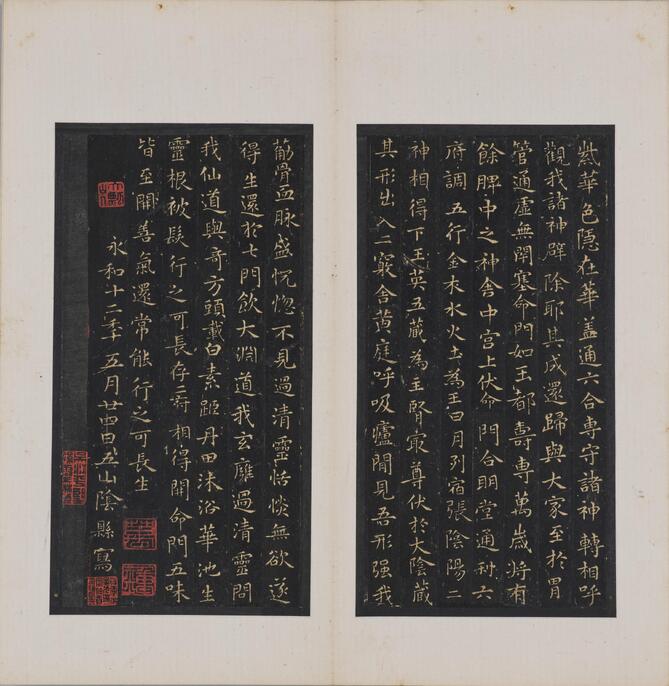 紫華色隱在華蓋通六合專守諸神轉相呼
觀我諸神辟除耶其成還歸與大家至於胃
管通虛無閉塞命門如玉都壽專萬歲將有
餘脾中之神舍中宮上伏命門合明堂通利六
府調五行金木水火土為王日月列宿張陰陽二
神相得下玉英五藏為主腎最尊伏於大陰藏
其形出入二竅舍黃庭呼吸廬間見吾形强我
筋骨血脉盛怳惚不見過清靈恬惔無欲遂
得生還於七門飲大淵道我玄廱過清靈問
我仙道與奇方頭載白素距丹田沐浴華池生
靈根被髮行之可長存二府相得開命門五味
皆至開善氣還常能行之可長生
永和十二年五月廿四日五山陰縣寫